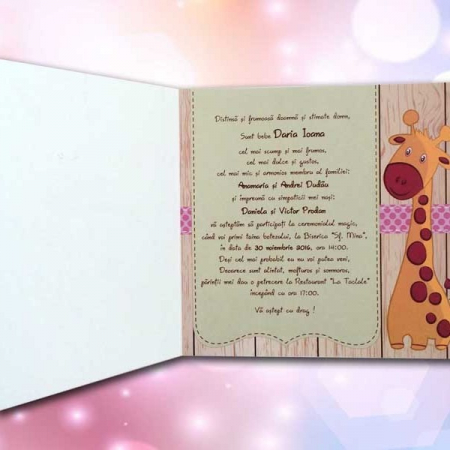 Distinsă și frumoasă doamnă și stimate domn,
Sunt bebe Daria Ioana
cel mai scump și mai frumos,
cel mai dulce și gustos,
cel mai mic și armonios membru al familiei:
Anamaria și Andrei Dudău
și împreună cu simpaticii mei nași:
Daniela și Victor Prodan
vă așteptăm să participați la ceremonialul magic,
când voi primi taina botezului, la Biserica "Sf. Mina",
în data de 30 noiembrie 2016, ora 14:00.
Deși cel mai probabil eu nu voi putea veni,
Deoarece sunt alintat, mofturos și somnoros,
părinții mei dau o petrecere la Restaurant "La"
începând cu ora 17:00.
Vă aștept cu drag !